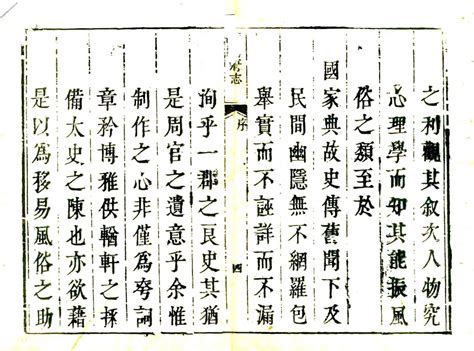 之利觀其叙次人物究
心理學而知其能振風
俗之類至於
國家典故史傳舊聞下及
民間幽隱無不網羅包
舉實而不誣詳而不漏
志
序
四
洵乎一郡之良史其猶
是周官之遺意乎余惟
制作之心非僅爲夸詞
章矜博雅供輶軒之採
備太史之陳也亦欲藉
是以爲移易風俗之助